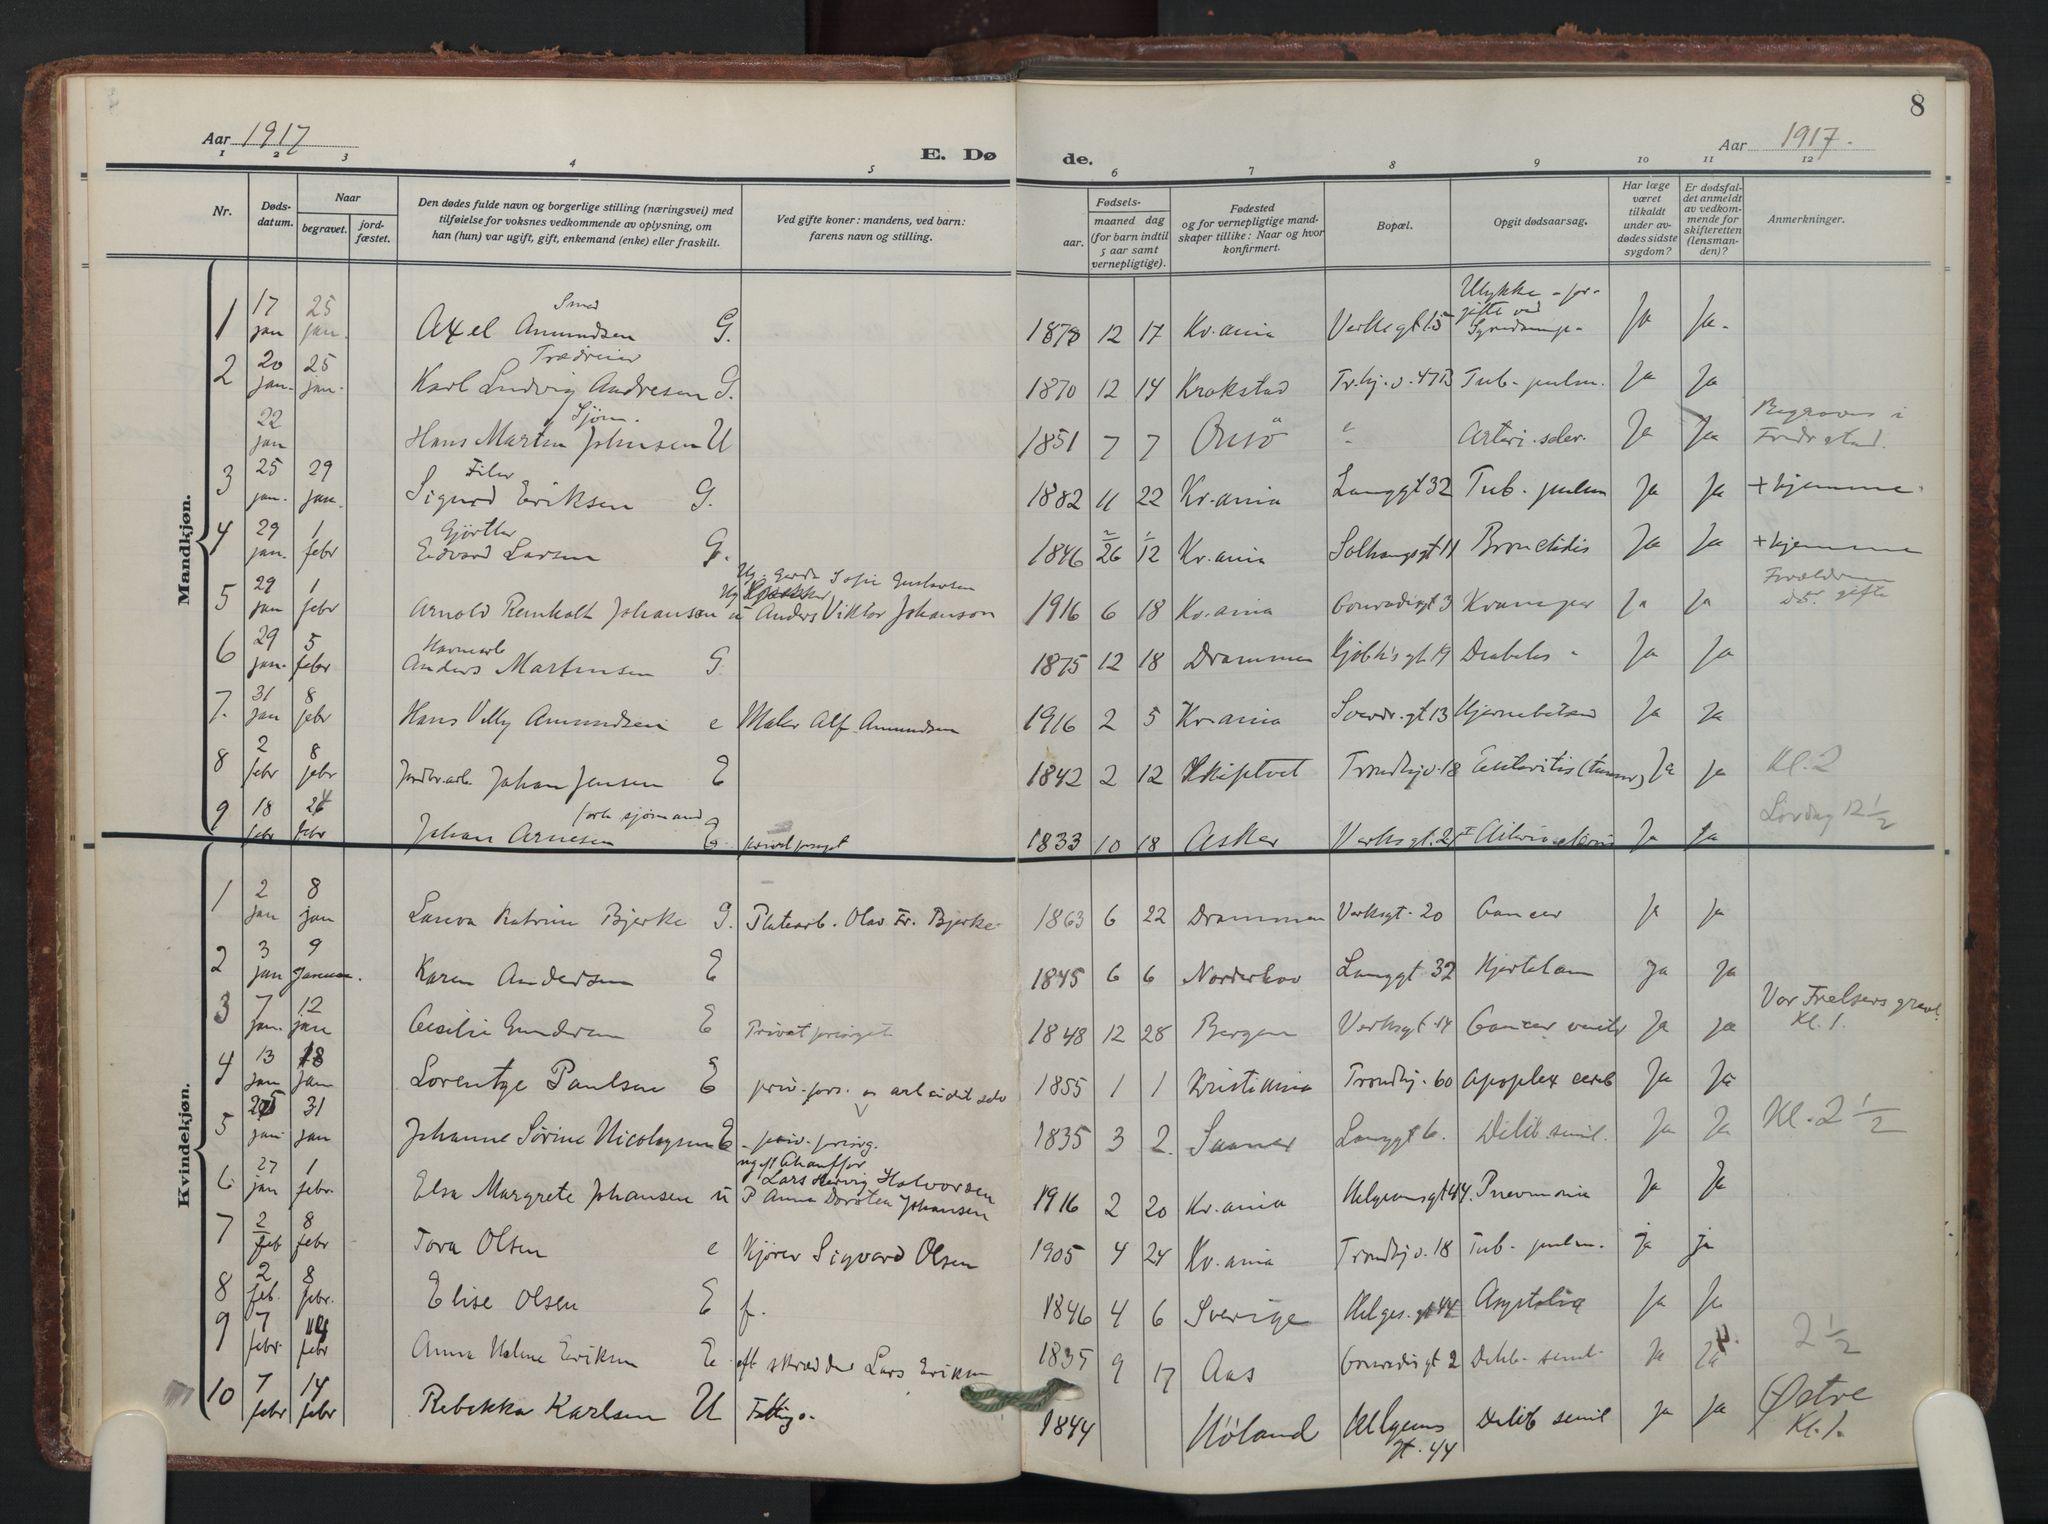 8
Aar 1917
E. Dø
de.
Aar 1917.
1 2 3 4 5 6 7 8 9 10 11 12
Nr.
Døds-
datum.
Naar
begravet.
jord-
fæstet.
Den dødes fulde navn og borgerlige stilling (næringsvei) med
tilføielse for voksnes vedkommende av oplysning, om
han (hun) var ugift, gift, enkemand (enke) eller fraskilt.
Ved gifte koner: mandens, ved barn:
farens navn og stilling.
Fødsels-
aar.
maaned dag
(for barn indtil
5 aar samt
vernepligtige).
Fødested
og for vernepligtige mand-
skaper tillike: Naar og hvor
konfirmert.
Bopæl.
Opgit dødsaarsag.
Har læge
været
tilkaldt
under av-
dødes sidste
sygdom?
Er dødsfal-
det anmeldt
av vedkom-
mende for
skifteretten
(lensman-
den)?
Anmerkninger.
Mandkjøn.
1 17 jan 25 jan. Smed Axel Amundsen G. 1878 12 17 Kr.ania Verksgt 15 Ulykke - for-
gifte ved Ja Ja.
2 20 jan. 25 jan. Karl Ludvig Andresen G. 1870 12 14 Krokstad Tr.hj.v. 47B Tub. pulm. Ja Ja
22 jan Sjøm. Hans Martin Johnsen U 1851 7 7 Onsö " Arteri. scler. Ja Ja Begraves i
Fredrstad.
3 25 jan. 29 jan. Filer Sigurd Eriksen G. 1882 11 22 Kr.ania Langgt 32 Tub. pulm Ja Ja + hjemme.
4 29 jan. 1 febr Gjørtler Edvard Larsen G. 1846 26 12 Kr.ania Bronchitis Ja Ja + hjemme
5 29 jan 1 febr Arnold Reinholt Johansen u Ug. Gerda Sofie Gustavsen
Anders Viktor Johanson 1916 6 18 Kr.ania Conradisgt 3 Kramper Ja Ja Forældrene
gifte
6 29 jan. 5 febr Havnearb Anders Martinsen G. 1875 12 18 Drammen Diabetes Ja Ja
7. 31 jan 8 febr Hans Villy Amundsen e Maler Alf Amundsen 1916 2 5 Kr.ania Sverdr.gt 13 Hjernebetend Ja Ja
8 2 febr 8 febr Jordbr.arb. Johan Jensen E 1842 2 12 Skiptvet Trondhjv. 18 Enteritis Ja Ja Kl. 2
9 18 febr 24 febr forh sjømand Johan Arnesen E. privat forsørget 1833 10 18 Asker Verksgt. Ja Ja Lørdag 12 1/2
Kvindekjøn.
1 2 jan 8 jan Katrine Bjerke G. Platearb. Olav Fr. Bjerke 1863 6 22 Drammen Verksgt. 20 Cancer Ja Ja
2 3 jan 9 Januar. Karen Andersen E 1845 6 6 Norderhov Langgt 32 Hjertelam Ja Ja
3 7 jan. 12 jan Cecilie Gundersen E Privat forsørget 1848 12 28 Bergen Verksgt 14 Cancer Ja Ja Vor Frelsers gravl.
Kl. 1.
4 13 jan 18 jan Lorentze Paulsen E priv. fors. og arbeidet selv 1855 1 1 Kristiania Trondhj. 60 Apoplex cereb Ja Ja
5 25 jan 31 jan Johanne Sørine Nicolaysen E - priv. forsørg. 1835 3 2. Saaner Langgt 6. Debil. senil. Ja Ja Kl. 2 1/2
6 27 jan 1 febr. Elsa Margrete Johansen u ugift Chauffør
Lars Halvorsen
P Anna Dorotea Johansen 1916 2 20 Kr.ania Helgesensgt 44. Pneumonia Ja Ja
7 2 feb 8 febr Tora Olsen e Kjører Sigvard Olsen 1905 4 24 Kr.ania Trondhjv. 18 Tub. pulm. ja ja
8 2 feb. 8 febr. Elise Olsen E f. 1846 4 6 Sverige Helges.gt 44 Ja Ja
9 7 febr. 14 febr Anna Eriksen E. eft skrædder Lars Eriksen 1835 9 17 Aas Conradisgt 2 Debil. senil. Ja Ja 2 1/2
10 7 febr 14 febr Rebekka Karlsen U 1844 Høland Helgesens
gt. 44 Debil senil Ja Ja Østre
Kl. 1.